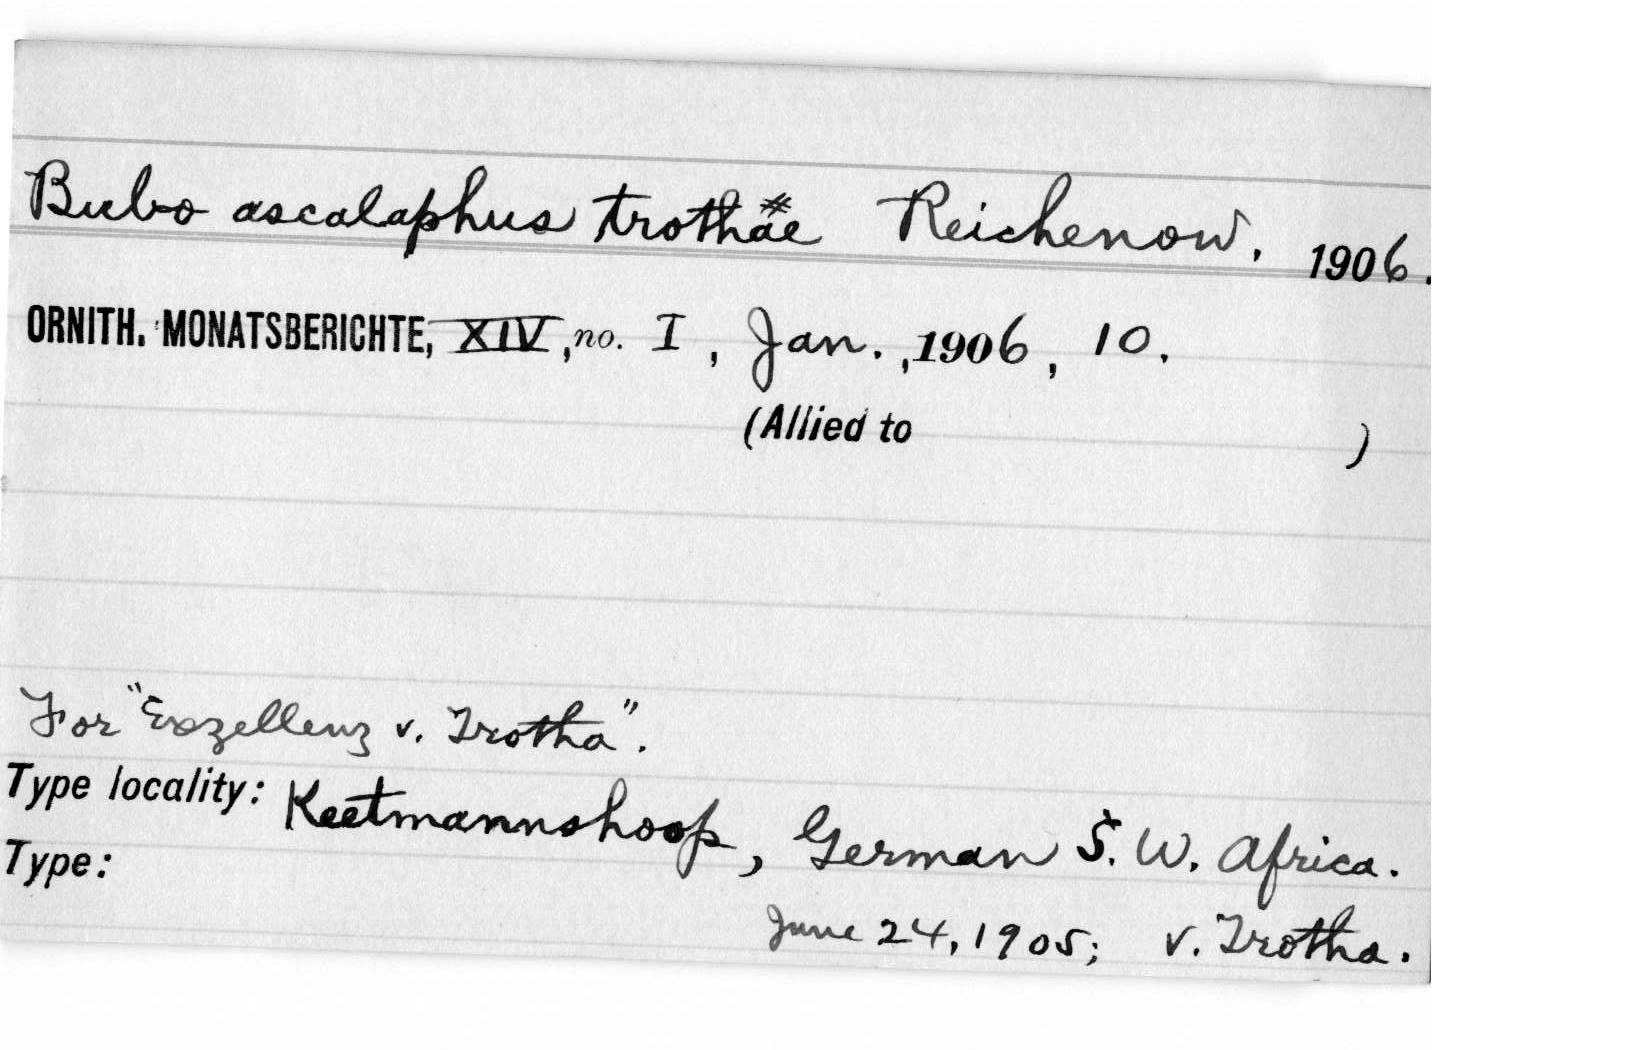 Bubo ascalaphus trothae# Reichenow, 1906.
ORNITH. MONATSBERICHTE, XIV, no. I, Jan., 1906, 10.
(Allied to )
For "Exzellenz v. Trotha".
Type locality: Keetmannshoop, German S. W. Africa.
Type:
June 24, 1905; v. Trotha.